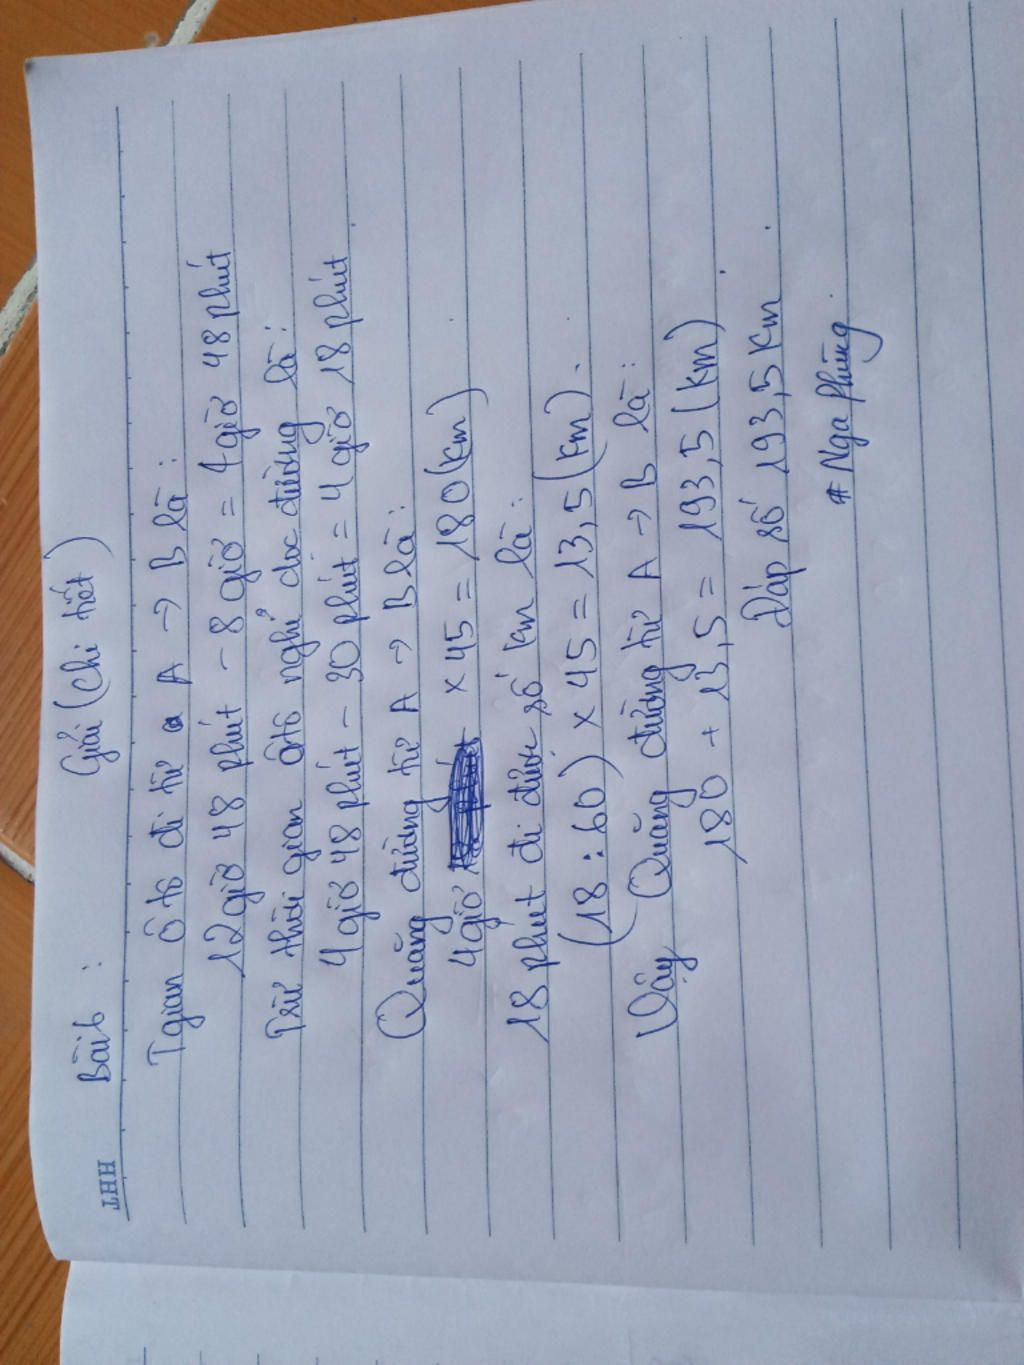 HHT
Bài 6 : Giải (chi tiết)
Tgian ô tô đi từ A → B là :
12 giờ 48 phút - 8 giờ = 4 giờ 48 phút
Trừ thời gian ôtô nghỉ dọc đường là :
4 giờ 48 phút - 30 phút = 4 giờ 18 phút
Quãng đường từ A → B là :
4 giờ × 45 = 180 (km)
18 phút đi được số km là :
(18 : 60) × 45 = 13,5 (km).
Vậy Quãng đường từ A → B là :
180 + 13,5 = 193,5 (km)
Đáp số 193,5 Km
# Nga Phùng